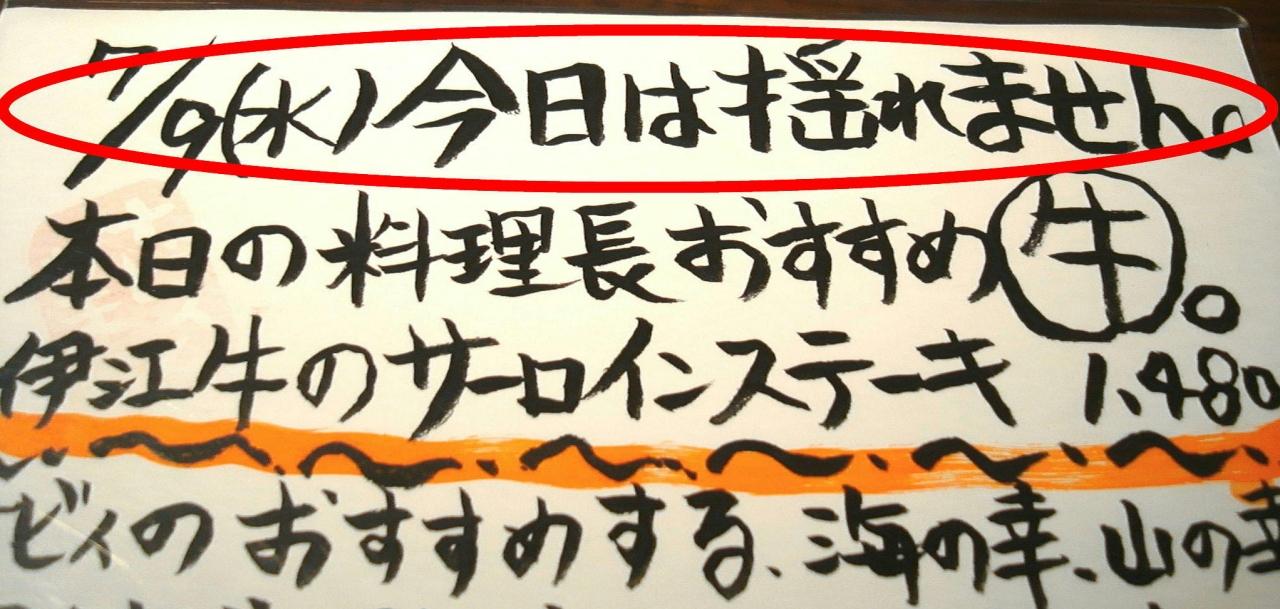 7/9(水)今日は揺れません。
本日の料理長おすすめ牛。
伊江牛のサーロインステーキ 1,480
ビィのおすすめする、海の幸、山の幸